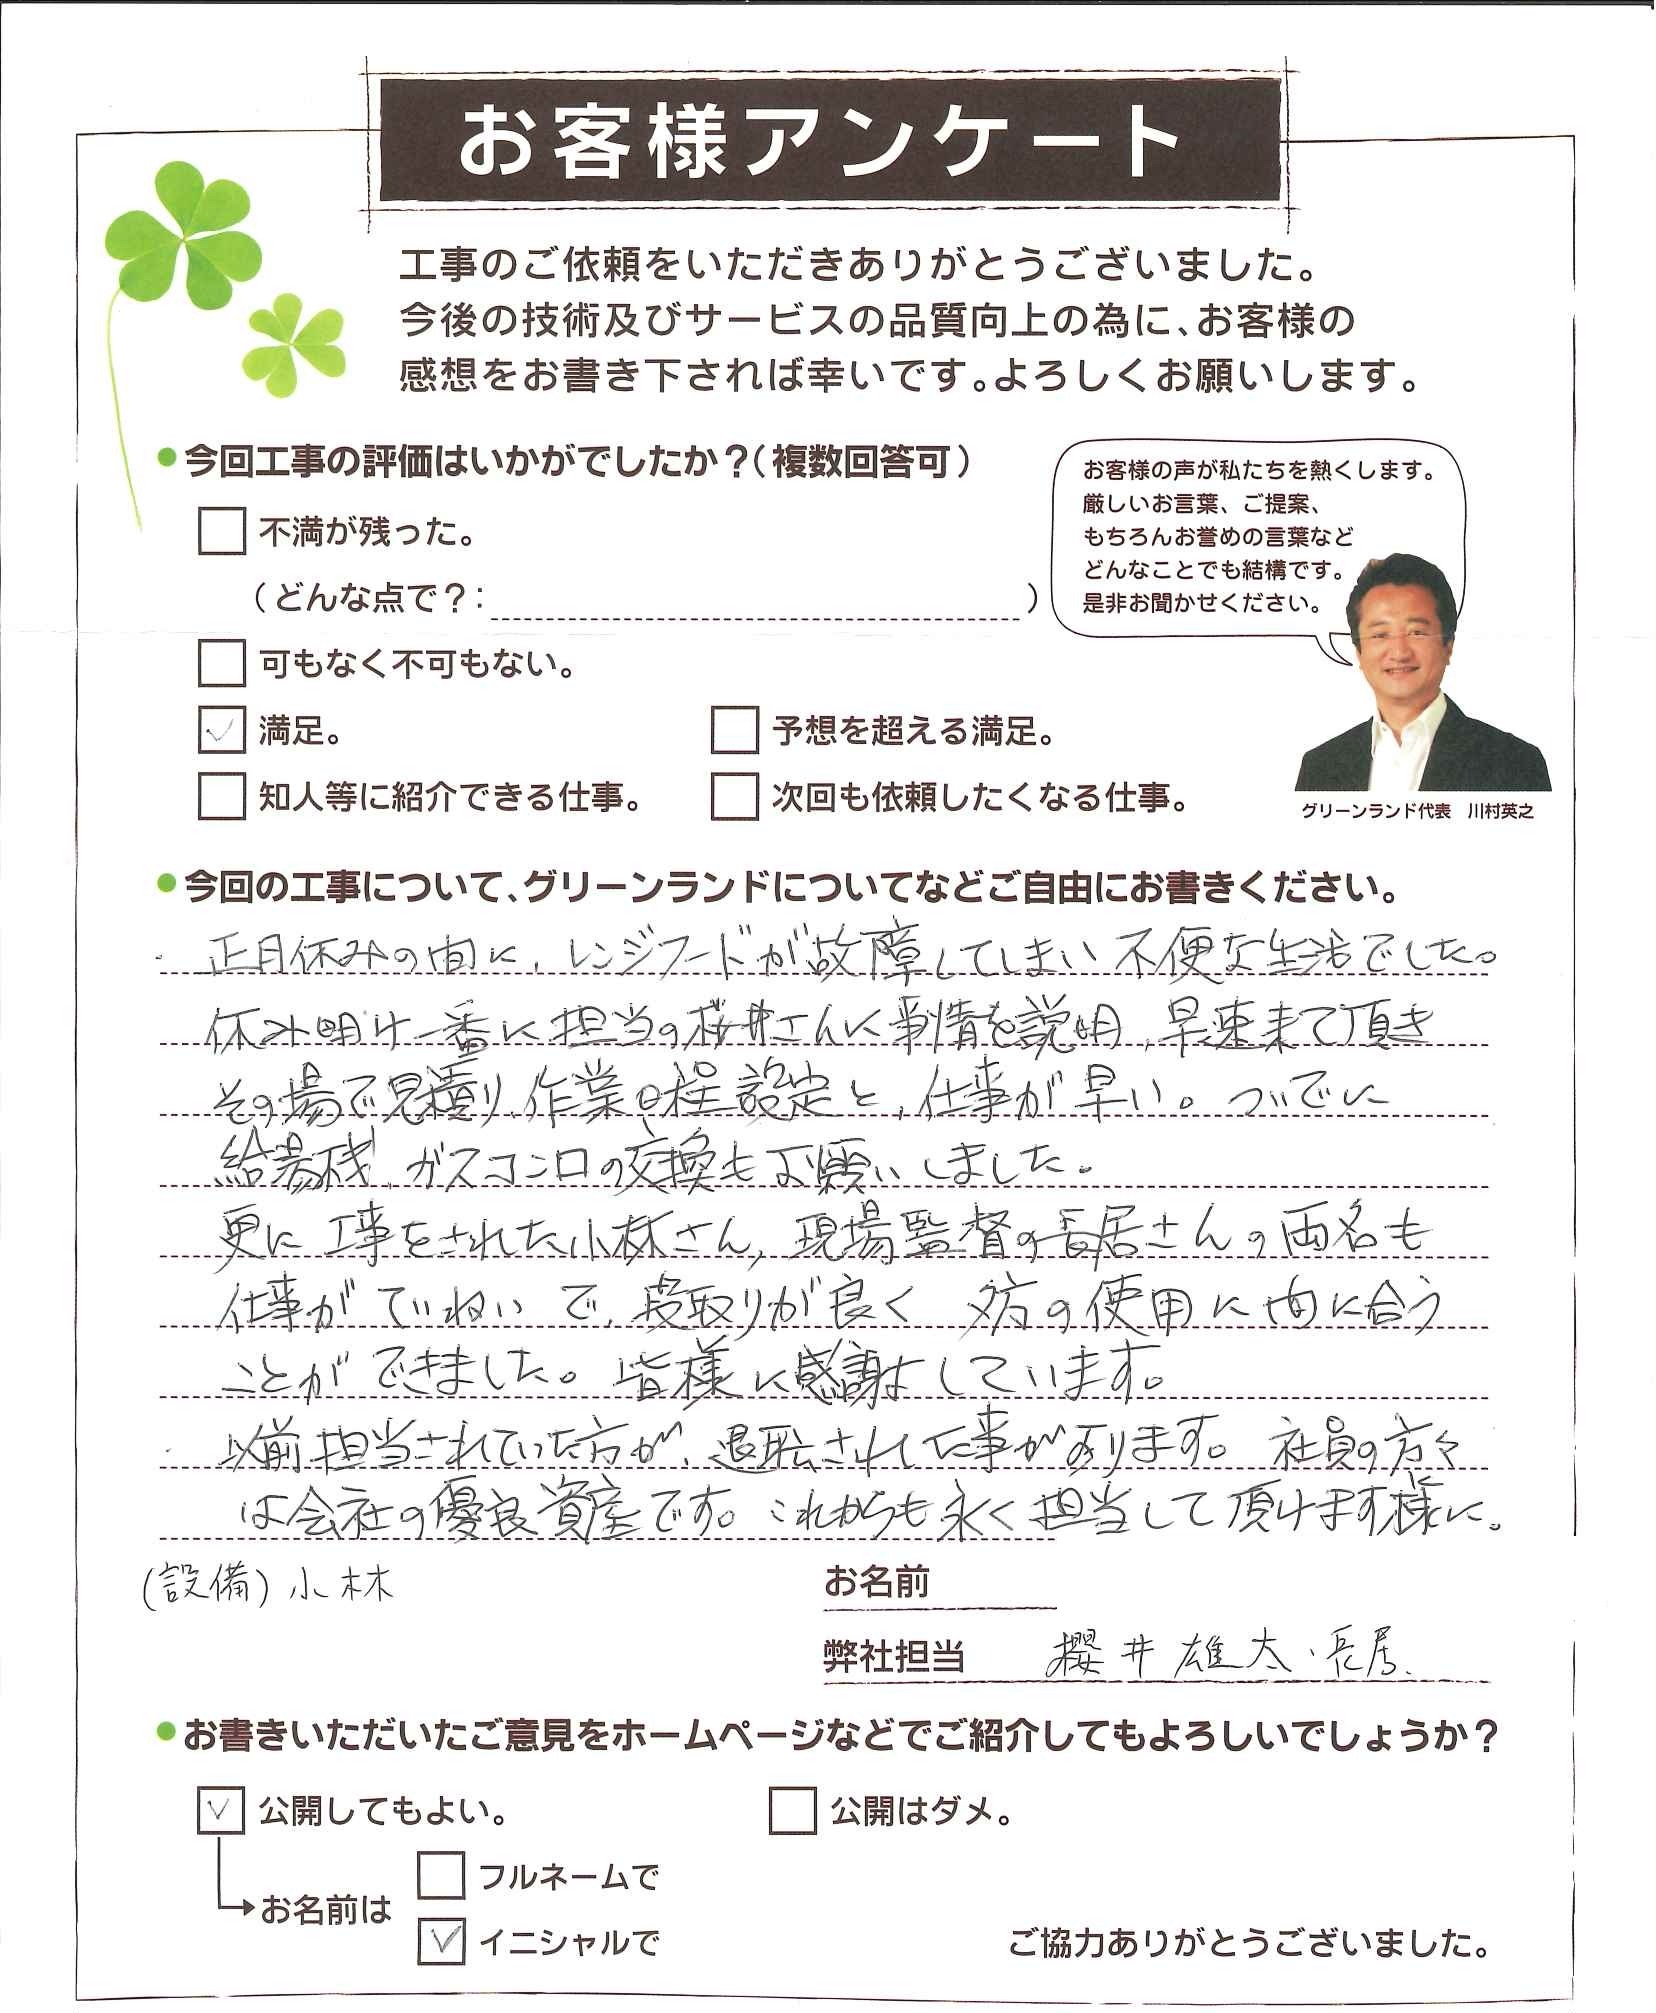 お客様アンケート
工事のご依頼をいただきありがとうございました。
今後の技術及びサービスの品質向上の為に、お客様の
感想をお書き下されば幸いです。よろしくお願いします。
今回工事の評価はいかがでしたか？（複数回答可）
不満が残った。
（どんな点で？： ）
可もなく不可もない。
満足。
予想を超える満足。
知人等に紹介できる仕事。
次回も依頼したくなる仕事。
お客様の声が私たちを熱くします。
厳しいお言葉、ご提案、
もちろんお誉めの言葉など
どんなことでも結構です。
是非お聞かせください。
グリーンランド代表　川村英之
今回の工事について、グリーンランドについてなどご自由にお書きください。
・正月休みの間に、レンジフードが故障してしまい不便な生活でした。
休み明け一番に担当の桜井さんに事情を説明、早速来て頂き
その場で見積り、作業日程設定と、仕事が早い。ついでに
給湯機、ガスコンロの交換もお願いしました。
更に工事をされた小林さん、現場監督の長居さんの両名も
仕事がていねいで、段取りが良く 夕方の使用に間に合う
ことができました。皆様に感謝しています。
・以前担当されていた方が、退職された事があります。社員の方々
は会社の優良資産です。これからも永く担当して頂けます様に。
(設備) 小林
お名前
弊社担当 櫻井雄太・長居
お書きいただいたご意見をホームページなどでご紹介してもよろしいでしょうか？
公開してもよい。
公開はダメ。
お名前は
フルネームで
イニシャルで
ご協力ありがとうございました。